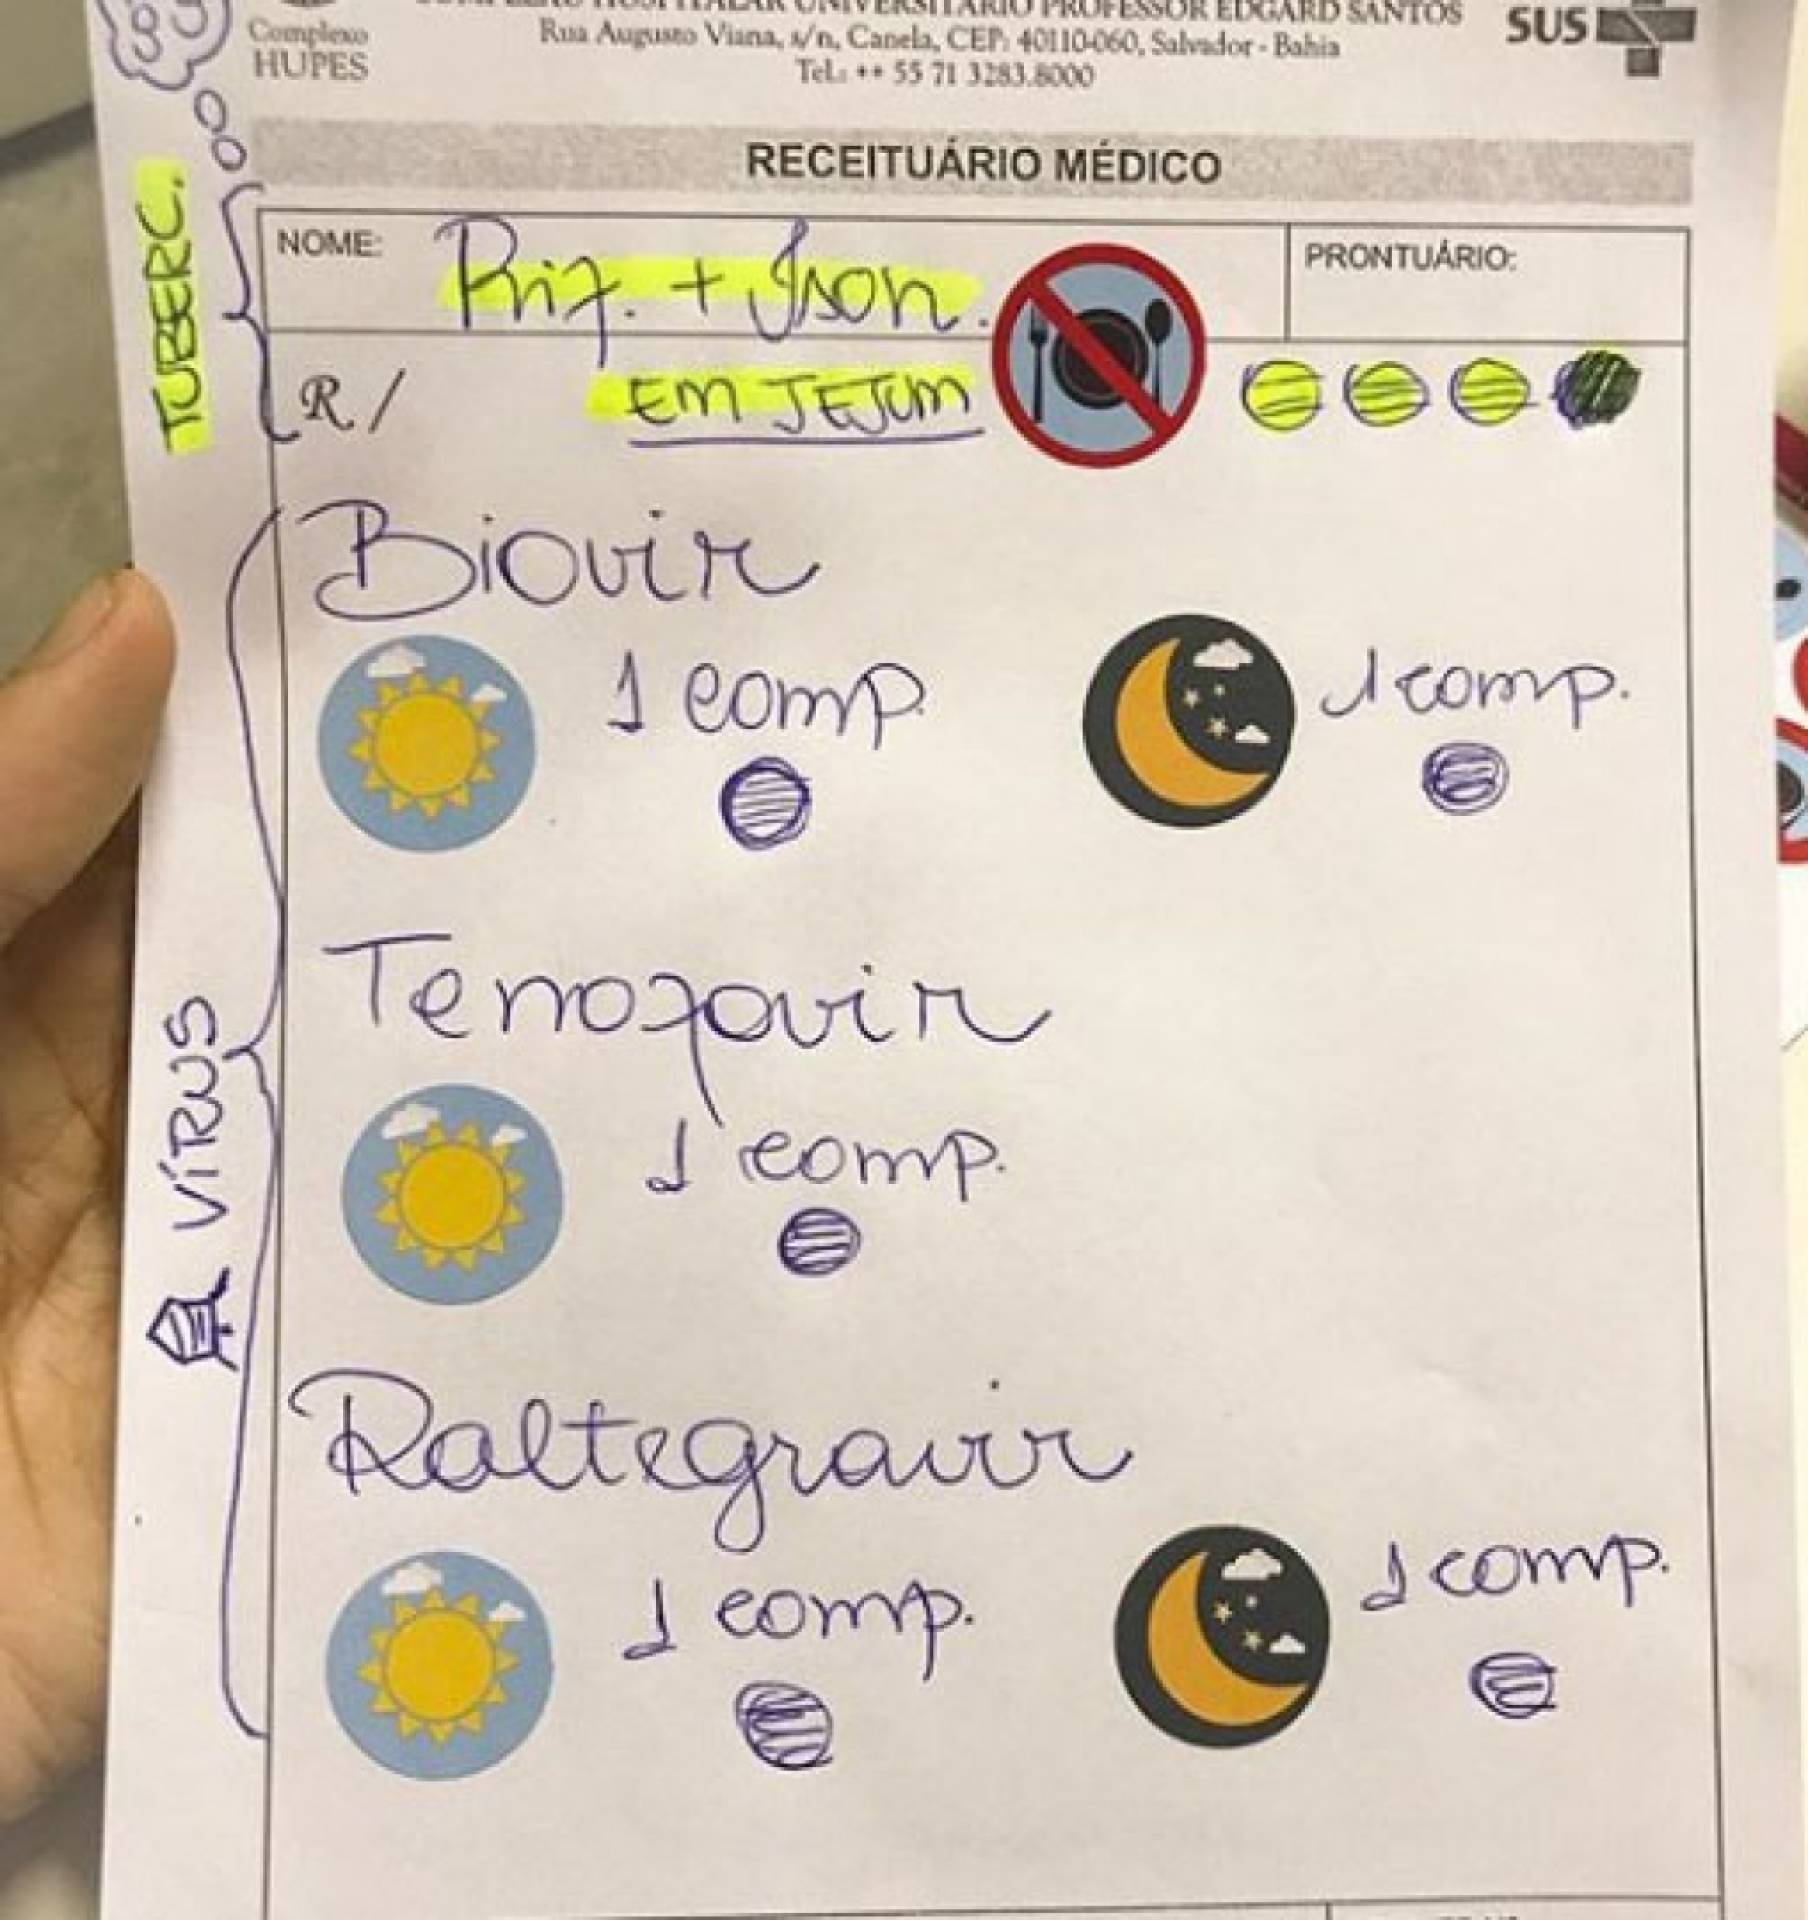 COMPLEXO HOSPITALAR UNIVERSITÁRIO PROFESSOR EDGARD SANTOS
Rua Augusto Viana, s/n, Canela, CEP: 40110-060, Salvador - Bahia
Tel.: ++ 55 71 3283.8000
Complexo
HUPES
SUS
RECEITUÁRIO MÉDICO
TUBERC.
NOME: Rif. + Ison.
PRONTUÁRIO:
R /
EM JEJUM
Biovir
1 comp.
1 comp.
Tenofovir
1 comp.
VÍRUS
Raltegravir
1 comp.
1 comp.